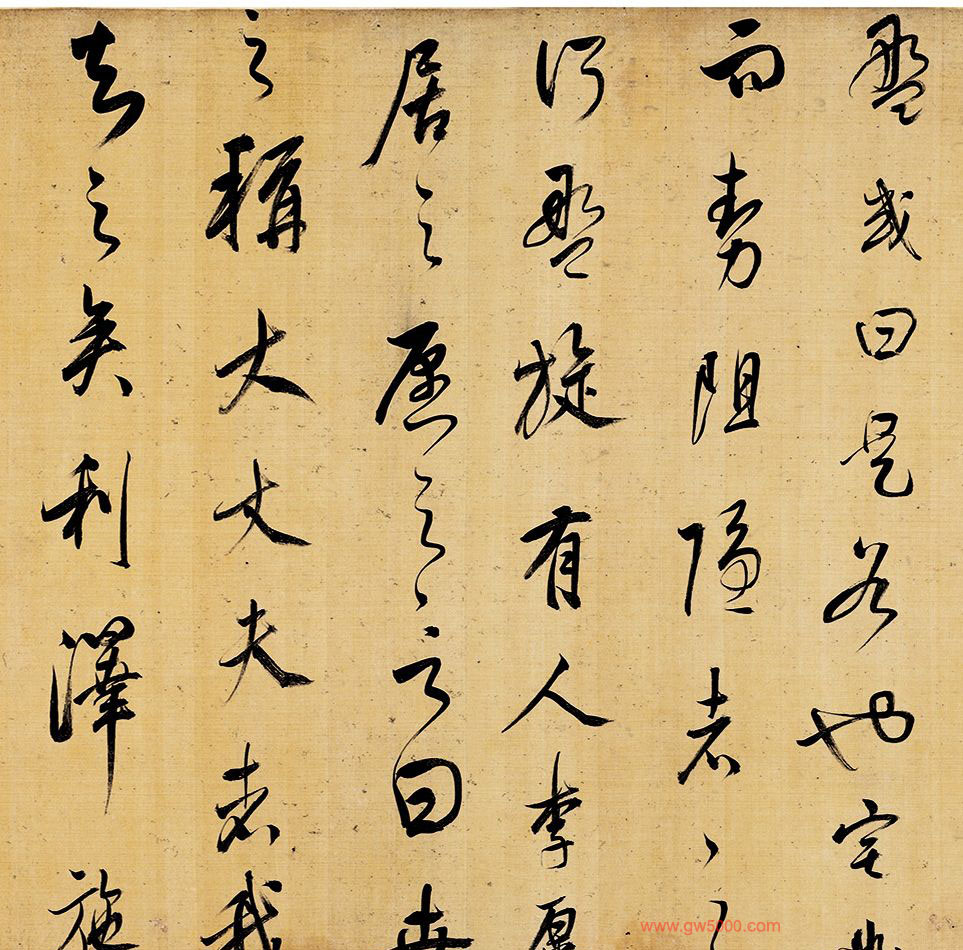 盤或曰是谷也宅
而勢阻隱者之
所盤旋有人李愿
居之愿之言曰世
之稱大丈夫者我
知之矣利澤施
www.gw5000.com